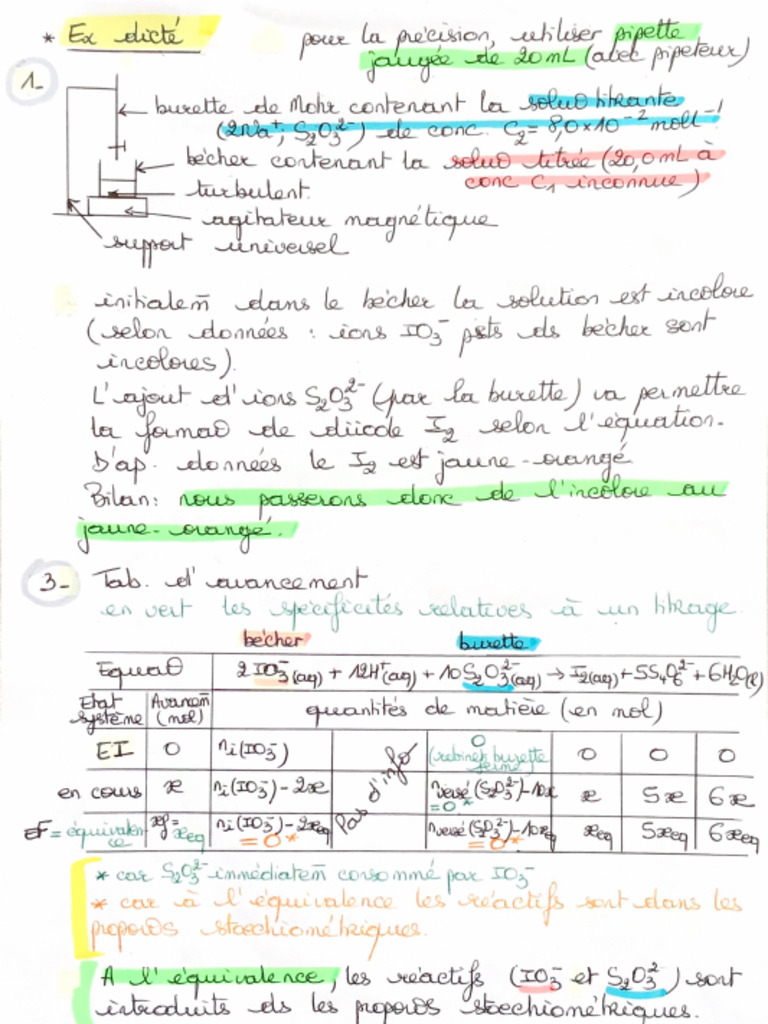 * Ex dicté
pour la précision, utiliser pipette
jaugée de 20 mL (avec pipeteur)
1-
burette de Mohr contenant la soluo titrante
(2Na⁺; S₂O₃²⁻) de conc. C₂ = 8,0×10⁻² mol.L⁻¹
bécher contenant la soluo titrée (20,0 mL à
conc C₁ inconnue)
turbulent.
agitateur magnétique
support universel
initialem̄ dans le bécher la solution est incolore
(selon données : ions IO₃⁻ psts ds bécher sont
incolores).
L'ajout d'ions S₂O₃²⁻ (par la burette) va permettre
la formao de diiode I₂ selon l'équation.
D'ap. données le I₂ est jaune-orangé
Bilan: nous passerons donc de l'incolore au
jaune-orangé.
3- Tab. d'avancement
en vert les spécificités relatives à un titrage.
bécher burette
Equao 2 IO₃⁻(aq) + 12H⁺(aq) + 10 S₂O₃²⁻(aq) → I₂(aq) + 5S₄O₆²⁻ + 6H₂O(l)
Etat système Avancem̄ (mol) quantités de matière (en mol)
EI 0 ni(IO₃⁻) Pas d'info 0 (robinet burette fermé) 0 0 0
en cours x ni(IO₃⁻) - 2x nversé(S₂O₃²⁻) - 10x = 0 * x 5x 6x
EF = équivalence xf = xeq ni(IO₃⁻) - 2xeq = 0 * nversé(S₂O₃²⁻) - 10xeq = 0 * xeq 5xeq 6xeq
* car S₂O₃²⁻ immédiatem̄ consommé par IO₃⁻
* car à l'équivalence les réactifs sont dans les
propoos stoechiométriques.
A l'équivalence, les réactifs (IO₃⁻ et S₂O₃²⁻) sont
introduits ds les propoos stoechiométriques.